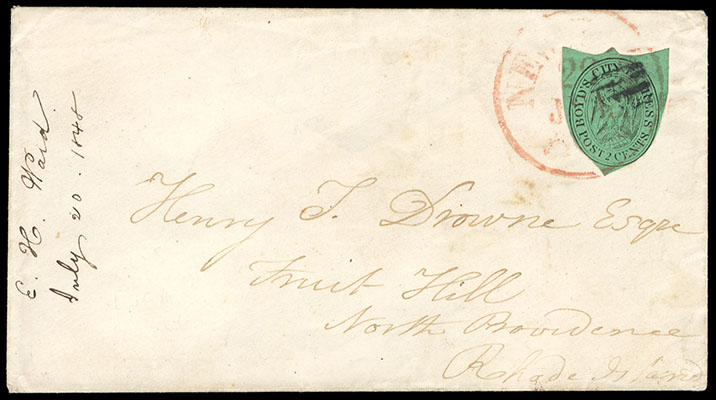 E. H. Ward
July 20. 1848
NE
20
J
BOYD'S CITY EXPRESS
POST 2 CENTS
Henry T. Drowne Esqre
Fruit Hill
North Providence
Rhode Island